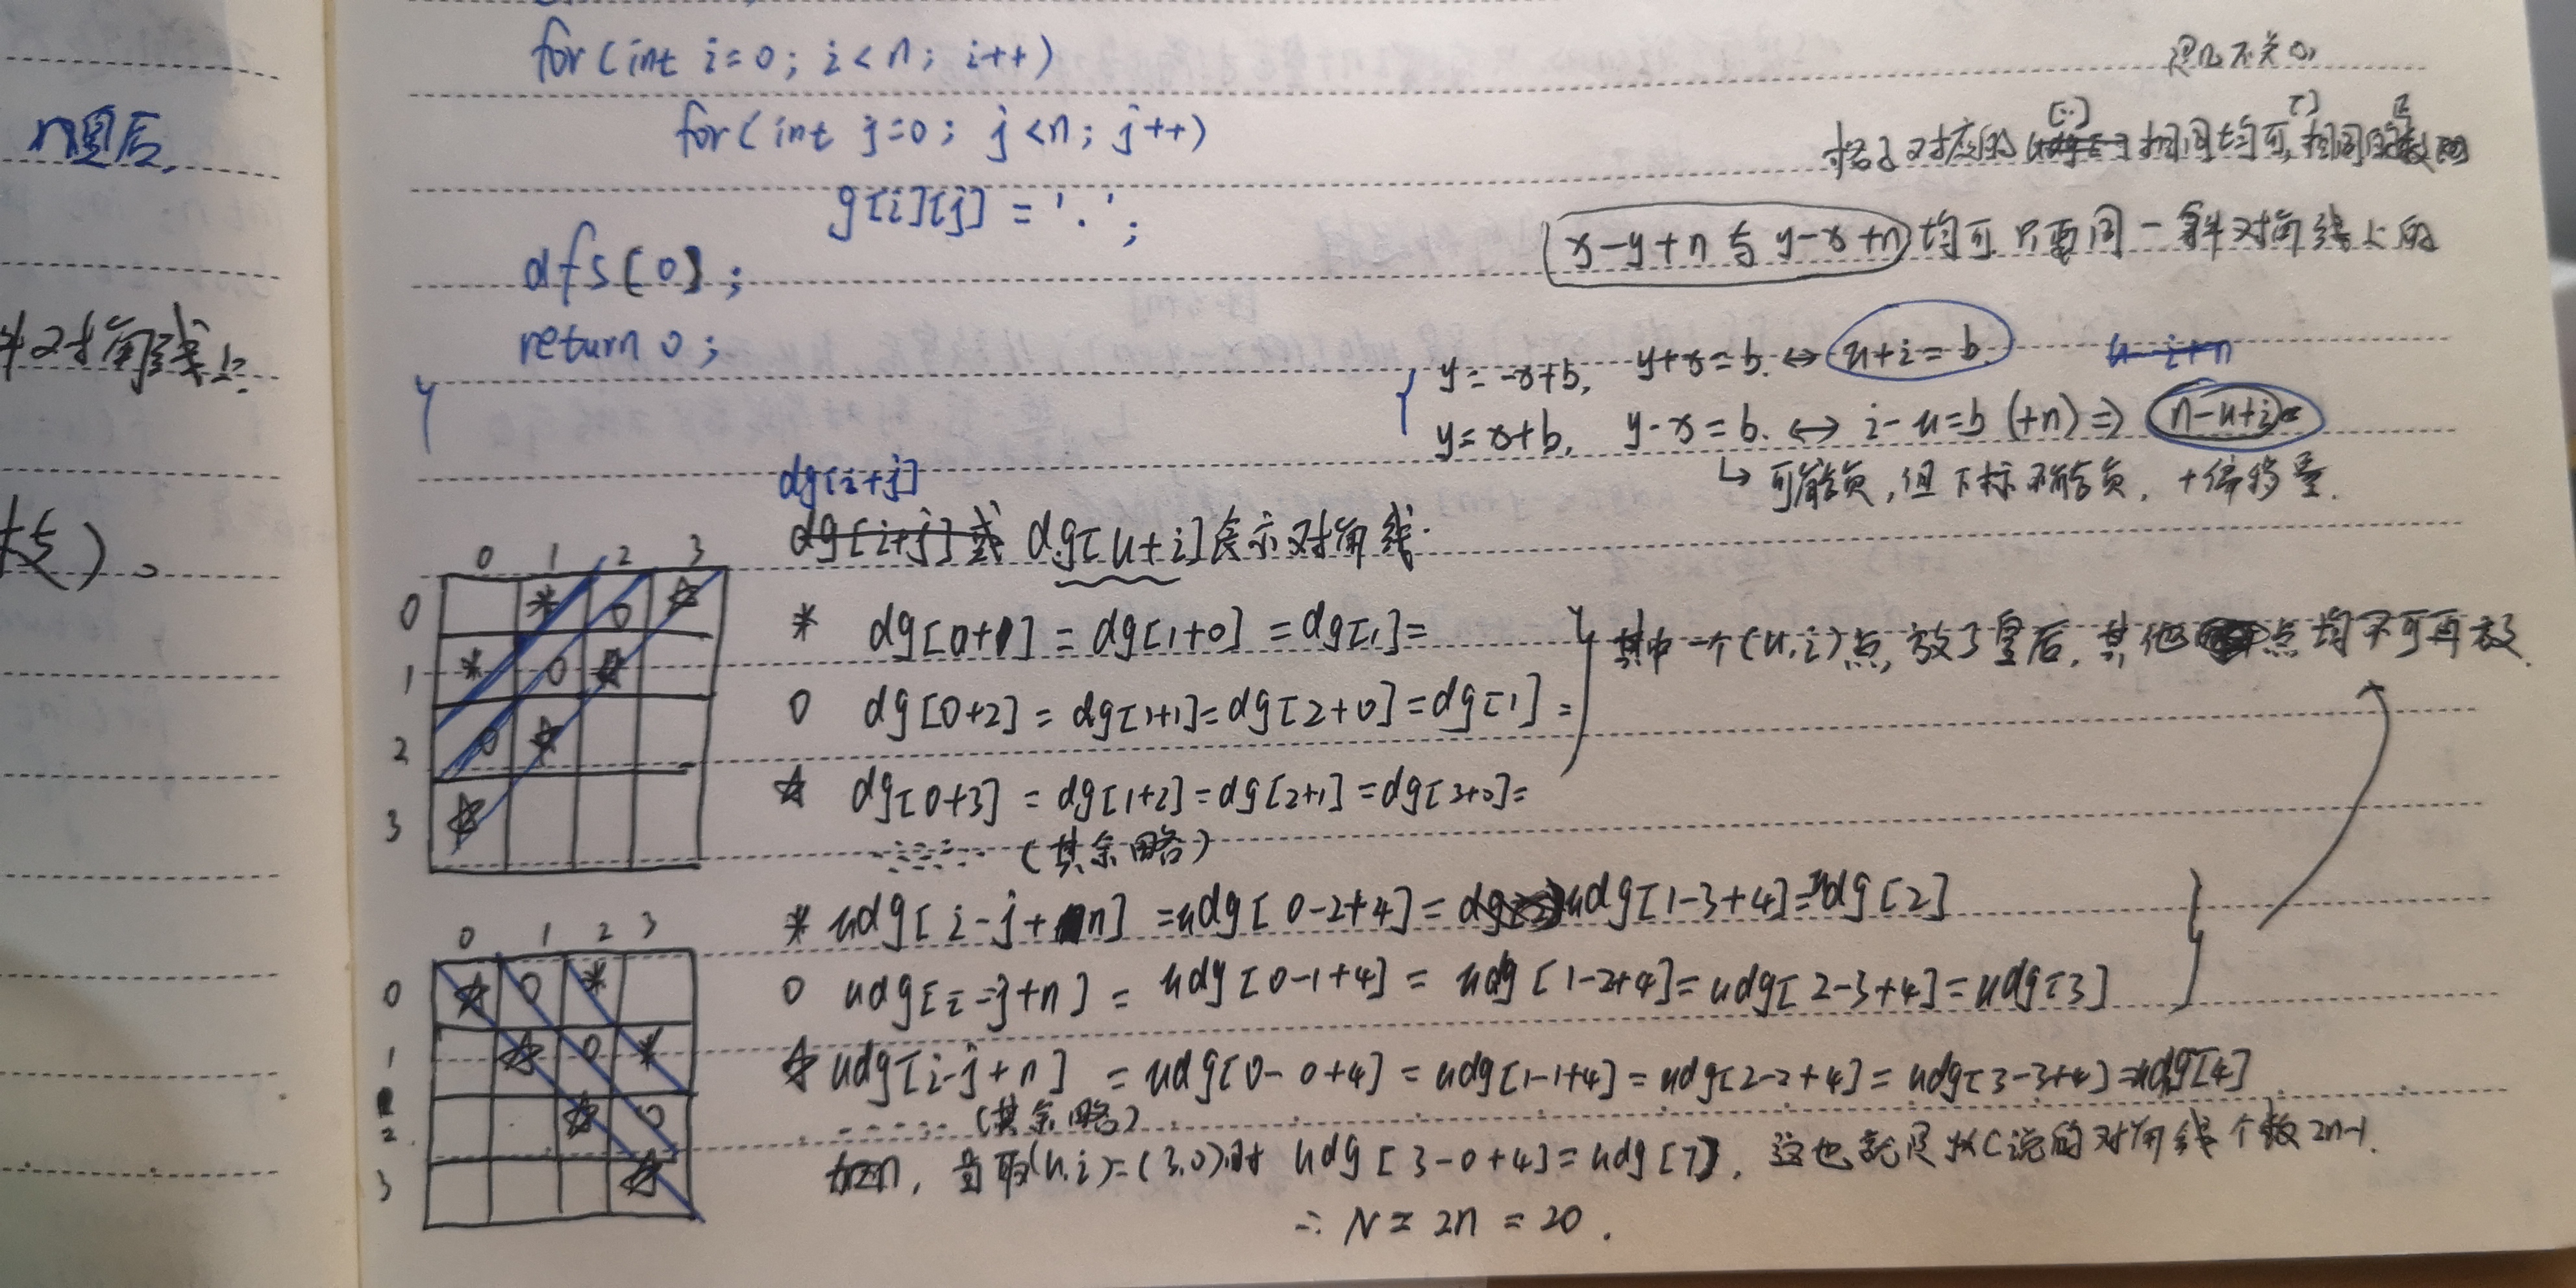 n皇后,
斜对角线上
技)。
for(int i=0; i<n; i++)
for(int j=0; j<n; j++)
g[i][j] = '.';
dfs[0];
return 0;
}
是几不关心
格子对应的[..]相同均可,相同的
x-y+n 与 y-x+n 均可 只要同一斜对角线上的
y=-x+b, y+x=b. ↔ u+i=b u-i+n
y=x+b, y-x=b. ↔ i-u=b (+n) ⇒ n-u+i
↳ 可能负,但下标不能负,+偏移量.
dg[i+j]
dg[i+j]或 dg[u+i]表示对角线.
0 1 2 3
0 * 0 ☆
1 * 0 ☆
2 0 ☆
3 ☆
* dg[0+1] = dg[1+0] = dg[1]=
0 dg[0+2] = dg[1+1]=dg[2+0]=dg[1]=
☆ dg[0+3] = dg[1+2]=dg[2+1]=dg[3+0]=
...... (其余略)
其中一个(u,i)点,放了皇后,其他点均不可再放.
* udg[i-j+n] =udg[0-2+4]= udg[1-3+4]=udg[2]
0 udg[i-j+n] = udg[0-1+4] = udg[1-2+4]=udg[2-3+4]=udg[3]
☆ udg[i-j+n] = udg[0-0+4] = udg[1-1+4]=udg[2-2+4]=udg[3-3+4]=udg[4]
...... (其余略)
0 1 2 3
0 ☆ 0 *
1 ☆ 0 *
2 ☆ 0
3 ☆
加n, 当取(u,i)=(3,0)时 udg[3-0+4]=udg[7], 这也就是 说的对角线个数2n-1.
∴ N=2n=20.